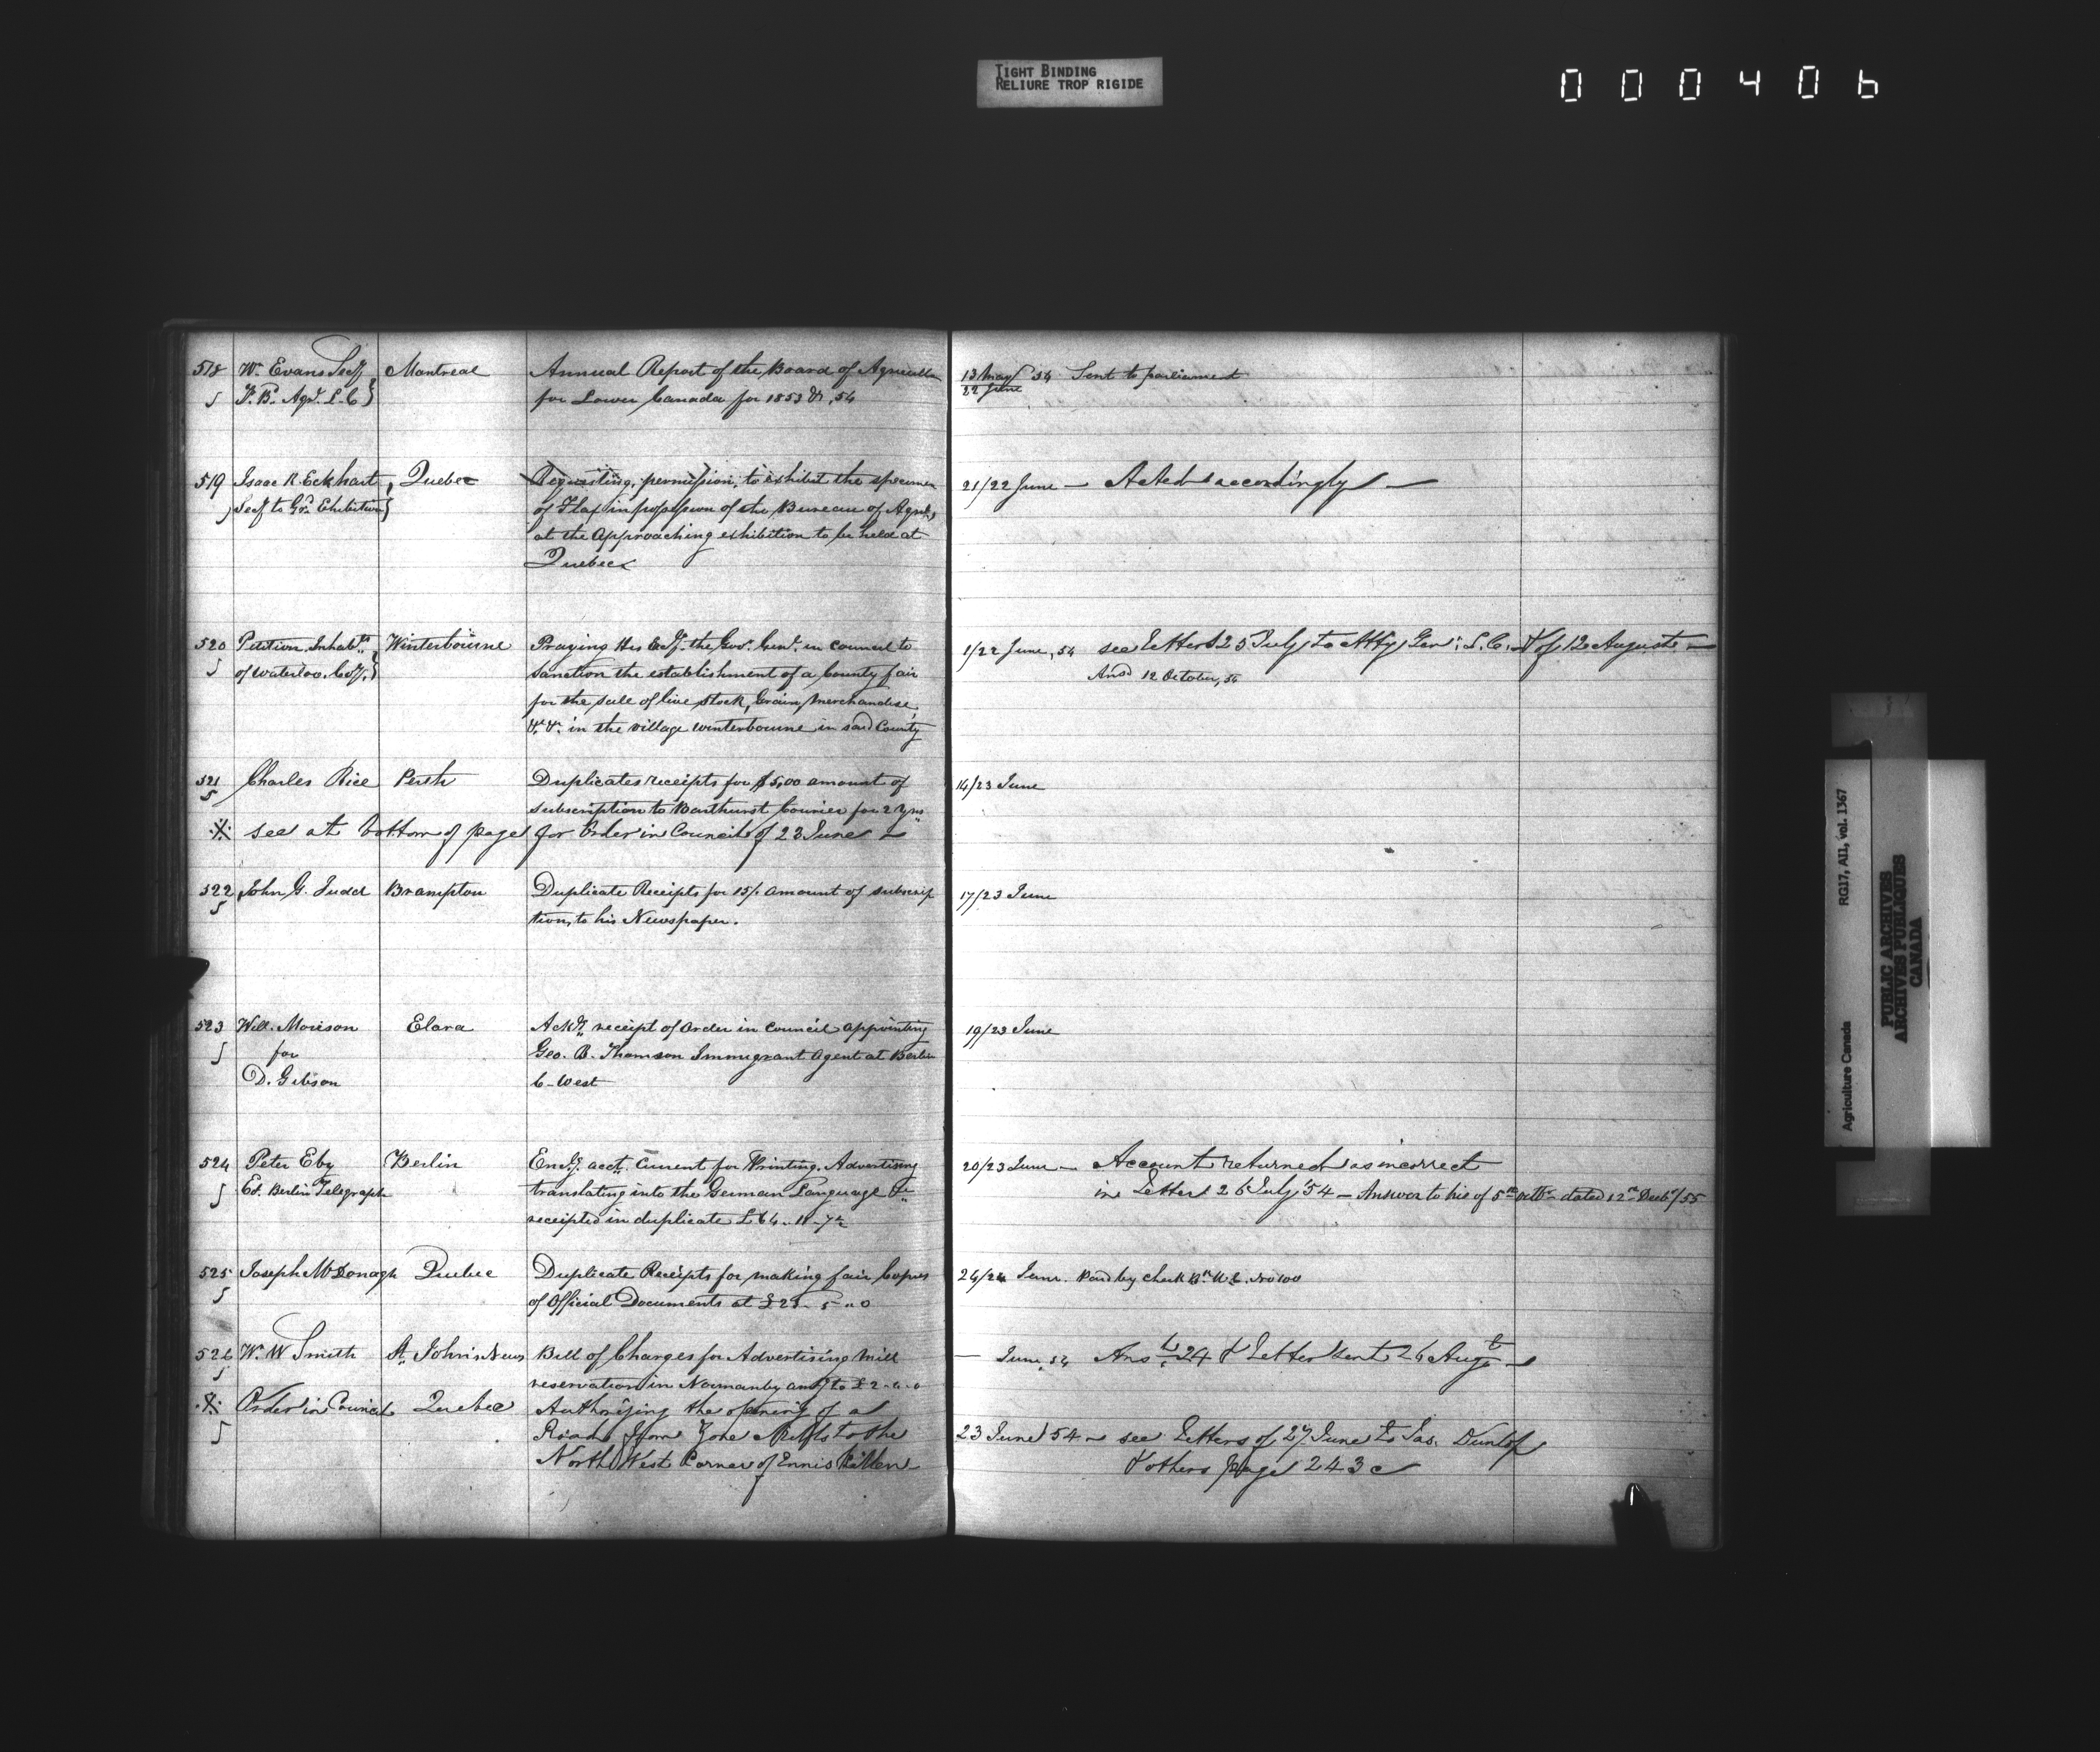 TIGHT BINDING
RELIURE TROP RIGIDE
000406
518 Wm. Evans Secy Montreal Annual Report of the Board of Agriculture
5 T. B. Agr. L. C } for Lower Canada for 1853 & ,54
13 May 54 Sent to parliament
22 June
519 Isaac R. Eckhart, Quebec Requesting, permission, to exhibit the specimen
5 Secy to Exhibition } of Flax in possession of the Bureau of Agre,
at the approaching exhibition to be held at
Quebec
21/22 June — Acted accordingly —
520 Petition Inhabts Winterbourne Praying His Exy. the Govr. Genl. in council to
5 of Waterloo. Coy. } sanction the establishment of a County fair
for the sale of live stock, Grain, Merchandise,
&c. &c. in the village Winterbourne in said County
1/22 June, 54 see letters 25 July to Atty Gen: L. C. & of 12 August —
Ansd 12 October, 54
521 Charles Rice Perth Duplicates receipts for $5,00 amount of
5 subscription to Barthurst Courier for 2 yrs
14/23 June
※ see at bottom of page for Order in Council of 23 June —
522 John G. Judd Brampton Duplicate Receipts for 15/. amount of subscrip
5 tion, to his Newspaper.
17/23 June
523 Will. Morison Elora Ackg. receipt of order in council appointing
5 for Geo. B. Thomson Immigrant Agent at Berlin
D. Gibson C-West
19/23 June
524 Peter Eby Berlin Encg. acct. Current for Printing. Advertising
5 Ed. Berlin Telegraph translating into the German Language &c
receipted in duplicate £64.
20/23 June — Account returned as incorrect
in Letter 26 July '54 — Answer to his of 5th dated 12th Decbr/55
525 Joseph McDonagh Quebec Duplicate Receipts for making fair Copies
5 of Official Documents at £23- 5 " 0
24/24 June. Paid by check Bk. U. C. No 100
526 W. W Smith St. Johns News Bill of Charges for Advertising Mill
5 reservation in Normanby amg to £2-0-0
— June, 54 Ans 24 & Letter sent 24 Augt —
※ Order in Council Quebec Authorizing the opening of a
5 Road from Zone Mills to the
North West Corner of Enniskillen
23 June 54 — see Letters of 27 June to Jas. Dunlop
& others page 243
Agriculture Canada RG17, AII, vol. 1367
PUBLIC ARCHIVES
ARCHIVES PUBLIQUES
CANADA